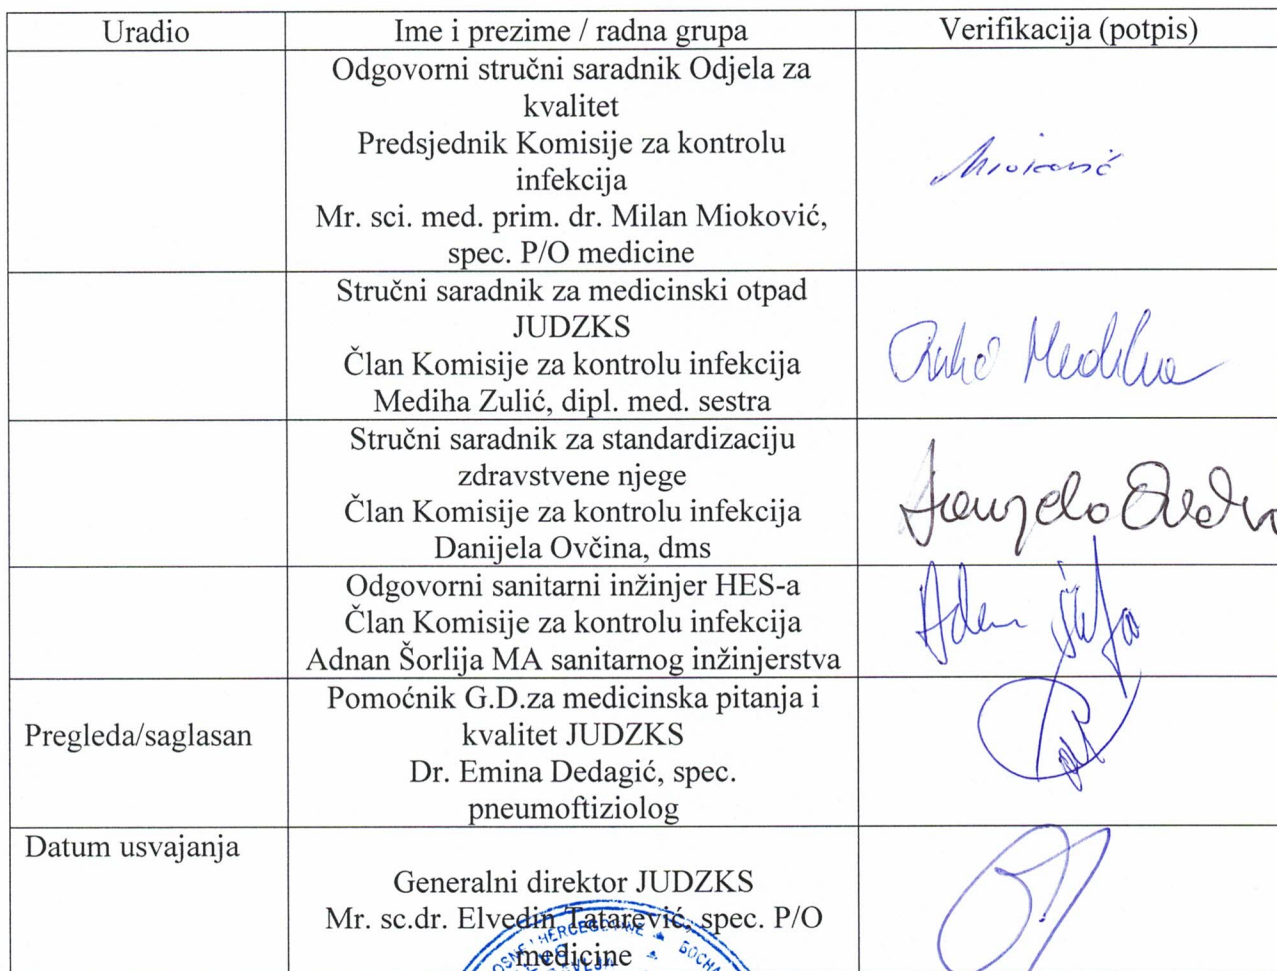 Uradio
Ime i prezime / radna grupa
Verifikacija (potpis)
Odgovorni stručni saradnik Odjela za
kvalitet
Predsjednik Komisije za kontrolu
infekcija
Mr. sci. med. prim. dr. Milan Mioković,
spec. P/O medicine
Stručni saradnik za medicinski otpad
JUDZKS
Član Komisije za kontrolu infekcija
Mediha Zulić, dipl. med. sestra
Stručni saradnik za standardizaciju
zdravstvene njege
Član Komisije za kontrolu infekcija
Danijela Ovčina, dms
Odgovorni sanitarni inžinjer HES-a
Član Komisije za kontrolu infekcija
Adnan Šorlija MA sanitarnog inžinjerstva
Pregleda/saglasan
Pomoćnik G.D.za medicinska pitanja i
kvalitet JUDZKS
Dr. Emina Dedagić, spec.
pneumoftiziolog
Datum usvajanja
Generalni direktor JUDZKS
Mr. sc.dr. Elvedin Tatarević, spec. P/O
medicine